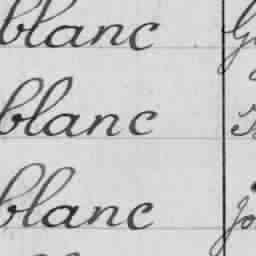 blanc
blanc
blanc